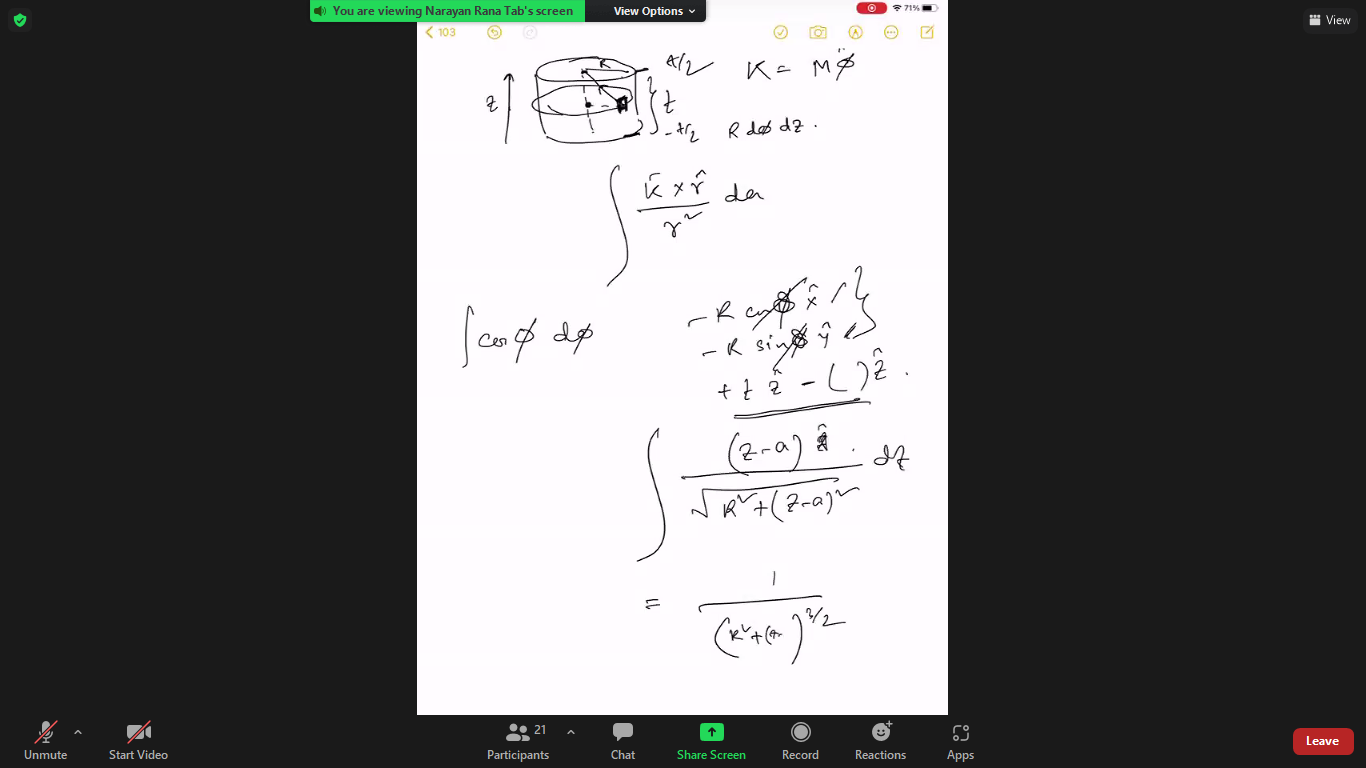 You are viewing Narayan Rana Tab's screen View Options
View
103
71%
R t/2 K = M φ̂
z r z
-t/2 R dφ dz.
∫ K × r̂ / r² da
- R cosφ x̂
∫ cosφ dφ
- R sinφ ŷ
+ z ẑ - ( ) ẑ.
∫ (z-a) ẑ. / √R²+(z-a)² dz
= 1 / (R²+( )^3/2
Unmute Start Video Participants 21 Chat Share Screen Record Reactions Apps Leave